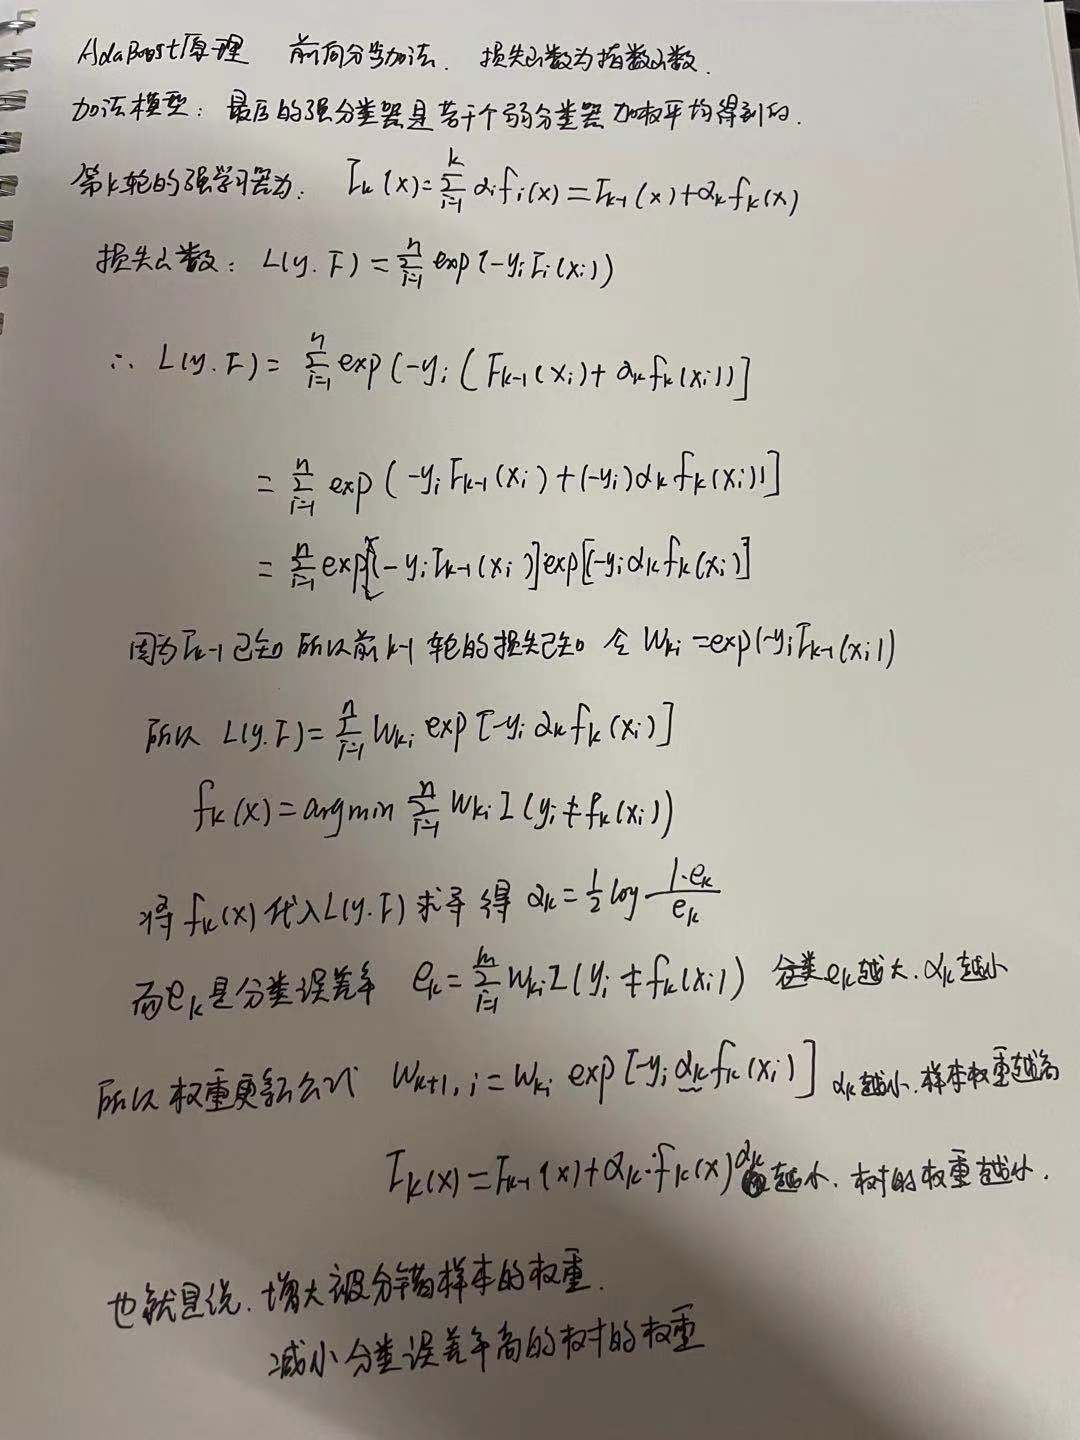 AdaBoost原理 前向分步加法. 损失函数为指数函数.
加法模型: 最后的强分类器是若干个弱分类器加权平均得到的.
第k轮的强学习器为: F_k(x)=∑_{i=1}^{k} α_i f_i(x)=F_{k-1}(x)+α_k f_k(x)
损失函数: L(y.F)=∑_{i=1}^{n} exp(-y_i F_i(x_i))
∴ L(y.F)=∑_{i=1}^{n} exp(-y_i(F_{k-1}(x_i)+α_k f_k(x_i))]
=∑_{i=1}^{n} exp(-y_i F_{k-1}(x_i)+(-y_i)α_k f_k(x_i))]
=∑_{i=1}^{n} exp[-y_i F_{k-1}(x_i)]exp[-y_i α_k f_k(x_i)]
因为F_{k-1}已知 所以前k-1轮的损失已知 令 W_{ki}=exp(-y_i F_{k-1}(x_i))
所以 L(y.F)=∑_{i=1}^{n} W_{ki} exp[-y_i α_k f_k(x_i)]
f_k(x)=argmin ∑_{i=1}^{n} W_{ki} I(y_i≠f_k(x_i))
将f_k(x)代入L(y.F)求导得 α_k=½ log (1-e_k)/e_k
而e_k是分类误差率 e_k=∑_{i=1}^{m} W_{ki} I(y_i≠f_k(x_i)) e_k越大.α_k越小
所以权重更新公式 W_{k+1,i}=W_{ki} exp[-y_i α_k f_k(x_i)] α_k越小.样本权重越高
F_k(x)=F_{k-1}(x)+α_k·f_k(x) α_k越小.树的权重越小.
也就是说.增大被分错样本的权重.
减小分类误差率高的树的权重